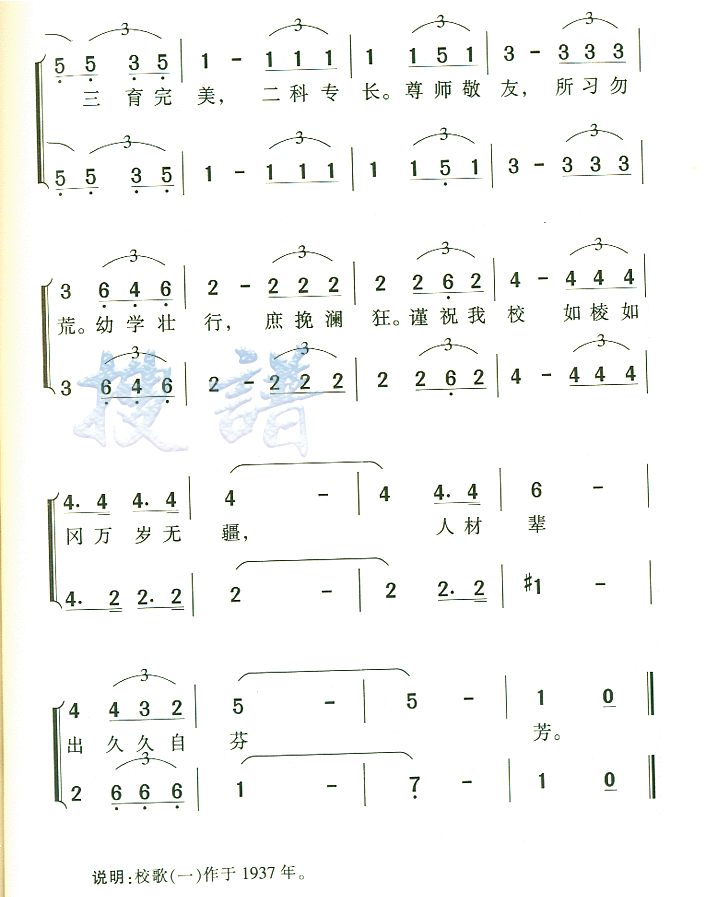 3 3 3 3
5 5 3 5 | 1 - 1 1 1 | 1 1 5 1 | 3 - 3 3 3 |
三 育 完 美， 二 科 专 长。 尊 师 敬 友， 所 习 勿
3 3 3 3
5 5 3 5 | 1 - 1 1 1 | 1 1 5 1 | 3 - 3 3 3 |
3 3 3 3
3 6 4 6 | 2 - 2 2 2 | 2 2 6 2 | 4 - 4 4 4 |
荒。 幼 学 壮 行， 庶 挽 澜 狂。 谨 祝 我 校 如 棱 如
3 3 3 3
3 6 4 6 | 2 - 2 2 2 | 2 2 6 2 | 4 - 4 4 4 |
搜谱
4. 4 4. 4 | 4 - | 4 4. 4 | 6 - |
冈 万 岁 无 疆， 人 材 辈
4. 2 2. 2 | 2 - | 2 2. 2 | #1 - |
3
4 4 3 2 | 5 - | 5 - | 1 0 ‖
出 久 久 自 芬 芳。
3
2 6 6 6 | 1 - | 7 - | 1 0 ‖
说明：校歌(一)作于1937年。